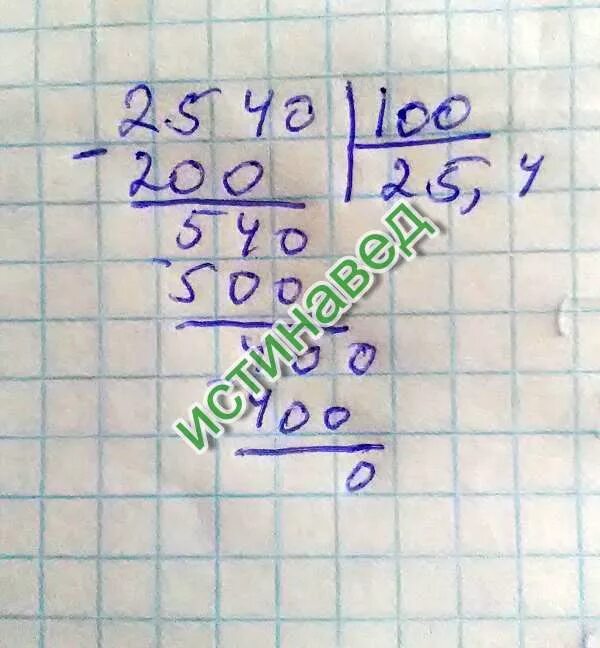 2540 | 100
- 200 | 25,4
540
- 500
400
400
0
истинавед